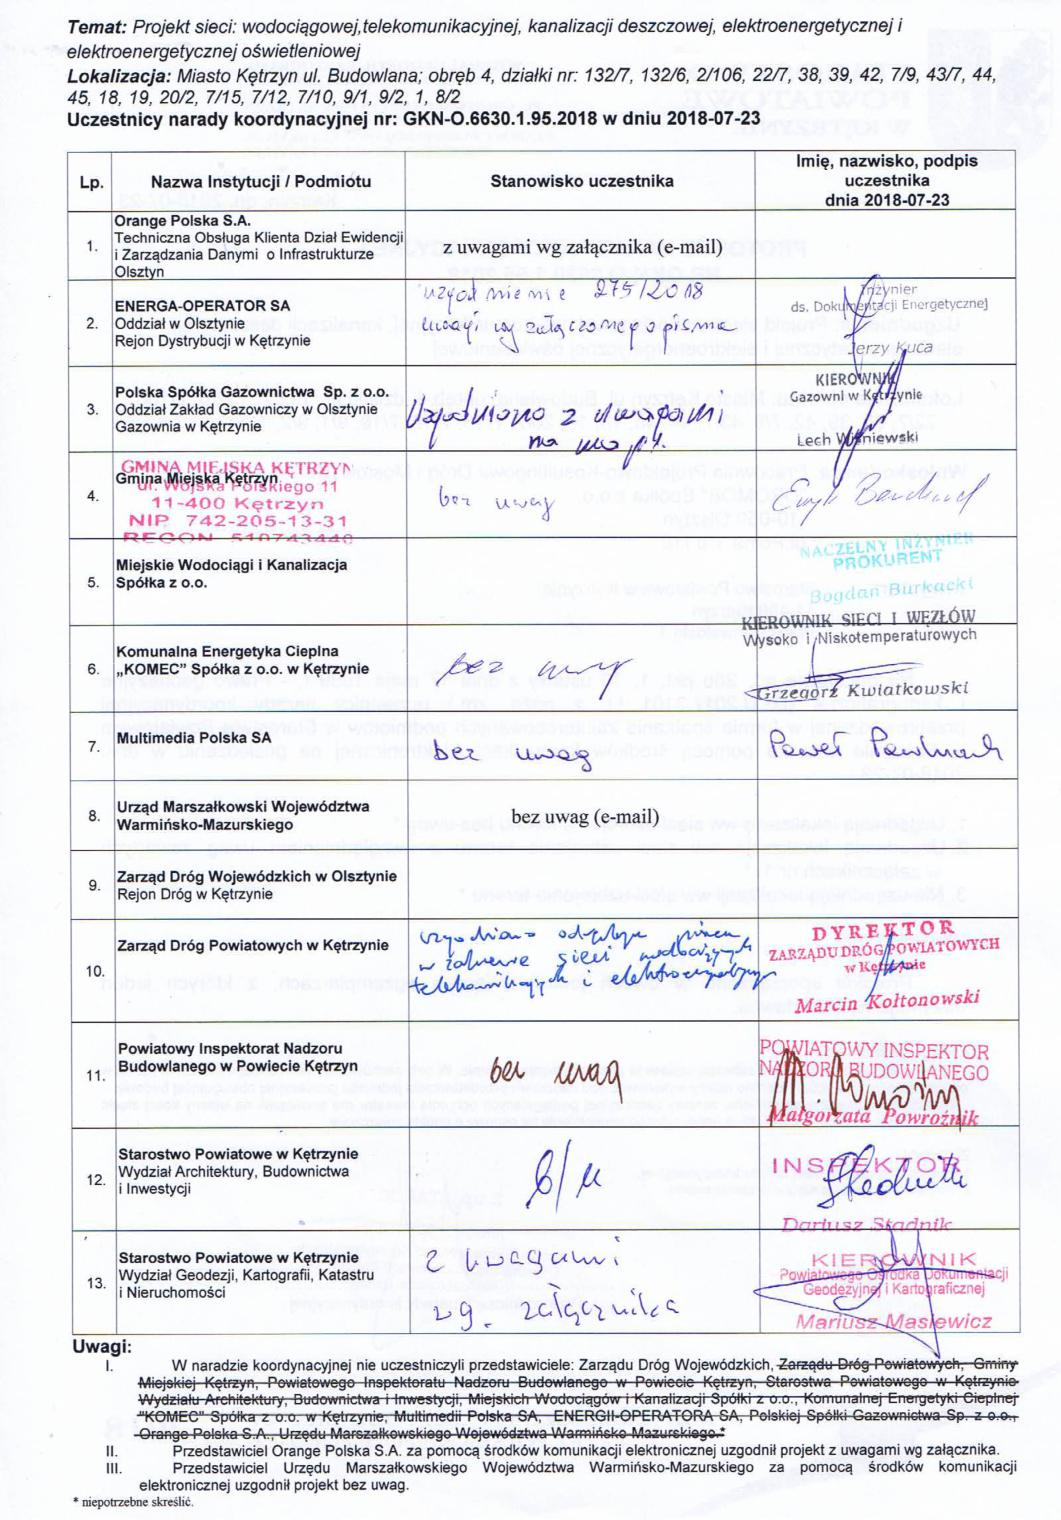 Temat: Projekt sieci: wodociągowej,telekomunikacyjnej, kanalizacji deszczowej, elektroenergetycznej i
elektroenergetycznej oświetleniowej
Lokalizacja: Miasto Kętrzyn ul. Budowlana; obręb 4, działki nr: 132/7, 132/6, 2/106, 22/7, 38, 39, 42, 7/9, 43/7, 44,
45, 18, 19, 20/2, 7/15, 7/12, 7/10, 9/1, 9/2, 1, 8/2
Uczestnicy narady koordynacyjnej nr: GKN-O.6630.1.95.2018 w dniu 2018-07-23
Lp.
Nazwa Instytucji / Podmiotu
Stanowisko uczestnika
Imię, nazwisko, podpis
uczestnika
dnia 2018-07-23
1.
Orange Polska S.A.
Techniczna Obsługa Klienta Dział Ewidencji
i Zarządzania Danymi o Infrastrukturze
Olsztyn
z uwagami wg załącznika (e-mail)
2.
ENERGA-OPERATOR SA
Oddział w Olsztynie
Rejon Dystrybucji w Kętrzynie
uzgodnienie 275/2018
uwagi wg załączonego pisma
Inżynier
ds. Dokumentacji Energetycznej
Jerzy Kuca
3.
Polska Spółka Gazownictwa Sp. z o.o.
Oddział Zakład Gazowniczy w Olsztynie
Gazownia w Kętrzynie
Uzgodniono z uwagami
na
KIEROWNIK
Gazowni w Kętrzynie
Lech Wiśniewski
4.
GMINA MIEJSKA KĘTRZYN
Gmina Miejska Kętrzyn
ul. Wojska Polskiego 11
11-400 Kętrzyn
NIP 742-205-13-31
REGON 510743440
bez uwag
5.
Miejskie Wodociągi i Kanalizacja
Spółka z o.o.
NACZELNY INŻYNIER
PROKURENT
Bogdan Burkacki
6.
Komunalna Energetyka Cieplna
„KOMEC" Spółka z o.o. w Kętrzynie
bez uwag
KIEROWNIK SIECI I WĘZŁÓW
Wysoko i Niskotemperaturowych
Grzegorz Kwiatkowski
7.
Multimedia Polska SA
bez uwag
Paweł
8.
Urząd Marszałkowski Województwa
Warmińsko-Mazurskiego
bez uwag (e-mail)
9.
Zarząd Dróg Wojewódzkich w Olsztynie
Rejon Dróg w Kętrzynie
10.
Zarząd Dróg Powiatowych w Kętrzynie
uzgodniono
w zakresie sieci wodociągowych
telekomunikacyjnych i elektroenergetycznych
DYREKTOR
ZARZĄDU DRÓG POWIATOWYCH
w Kętrzynie
Marcin Kołtonowski
11.
Powiatowy Inspektorat Nadzoru
Budowlanego w Powiecie Kętrzyn
bez uwag
POWIATOWY INSPEKTOR
NADZORU BUDOWLANEGO
Małgorzata Powroźnik
12.
Starostwo Powiatowe w Kętrzynie
Wydział Architektury, Budownictwa
i Inwestycji
b/u
INSPEKTOR
Dariusz Stadnik
13.
Starostwo Powiatowe w Kętrzynie
Wydział Geodezji, Kartografii, Katastru
i Nieruchomości
z uwagami
wg. załącznika
KIEROWNIK
Powiatowego Ośrodka Dokumentacji
Geodezyjnej i Kartograficznej
Mariusz Masiewicz
Uwagi:
I. W naradzie koordynacyjnej nie uczestniczyli przedstawiciele: Zarządu Dróg Wojewódzkich, Zarządu Dróg Powiatowych, Gminy
Miejskiej Kętrzyn, Powiatowego Inspektoratu Nadzoru Budowlanego w Powiecie Kętrzyn, Starostwa Powiatowego w Kętrzynie
Wydziału Architektury, Budownictwa i Inwestycji, Miejskich Wodociągów i Kanalizacji Spółki z o.o., Komunalnej Energetyki Cieplnej
"KOMEC" Spółka z o.o. w Kętrzynie, Multimedii Polska SA, ENERGII-OPERATORA SA, Polskiej Spółki Gazownictwa Sp. z o.o.,
Orange Polska S.A., Urzędu Marszałkowskiego Województwa Warmińsko Mazurskiego.*
II. Przedstawiciel Orange Polska S.A. za pomocą środków komunikacji elektronicznej uzgodnił projekt z uwagami wg załącznika.
III. Przedstawiciel Urzędu Marszałkowskiego Województwa Warmińsko-Mazurskiego za pomocą środków komunikacji
elektronicznej uzgodnił projekt bez uwag.
* niepotrzebne skreślić.